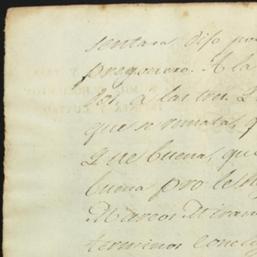 sentara dijo por
pregonero. A la
los, a las tres
que se remata, q
Que buena, que
buena pro les h
Marcos Miran
terminos concl